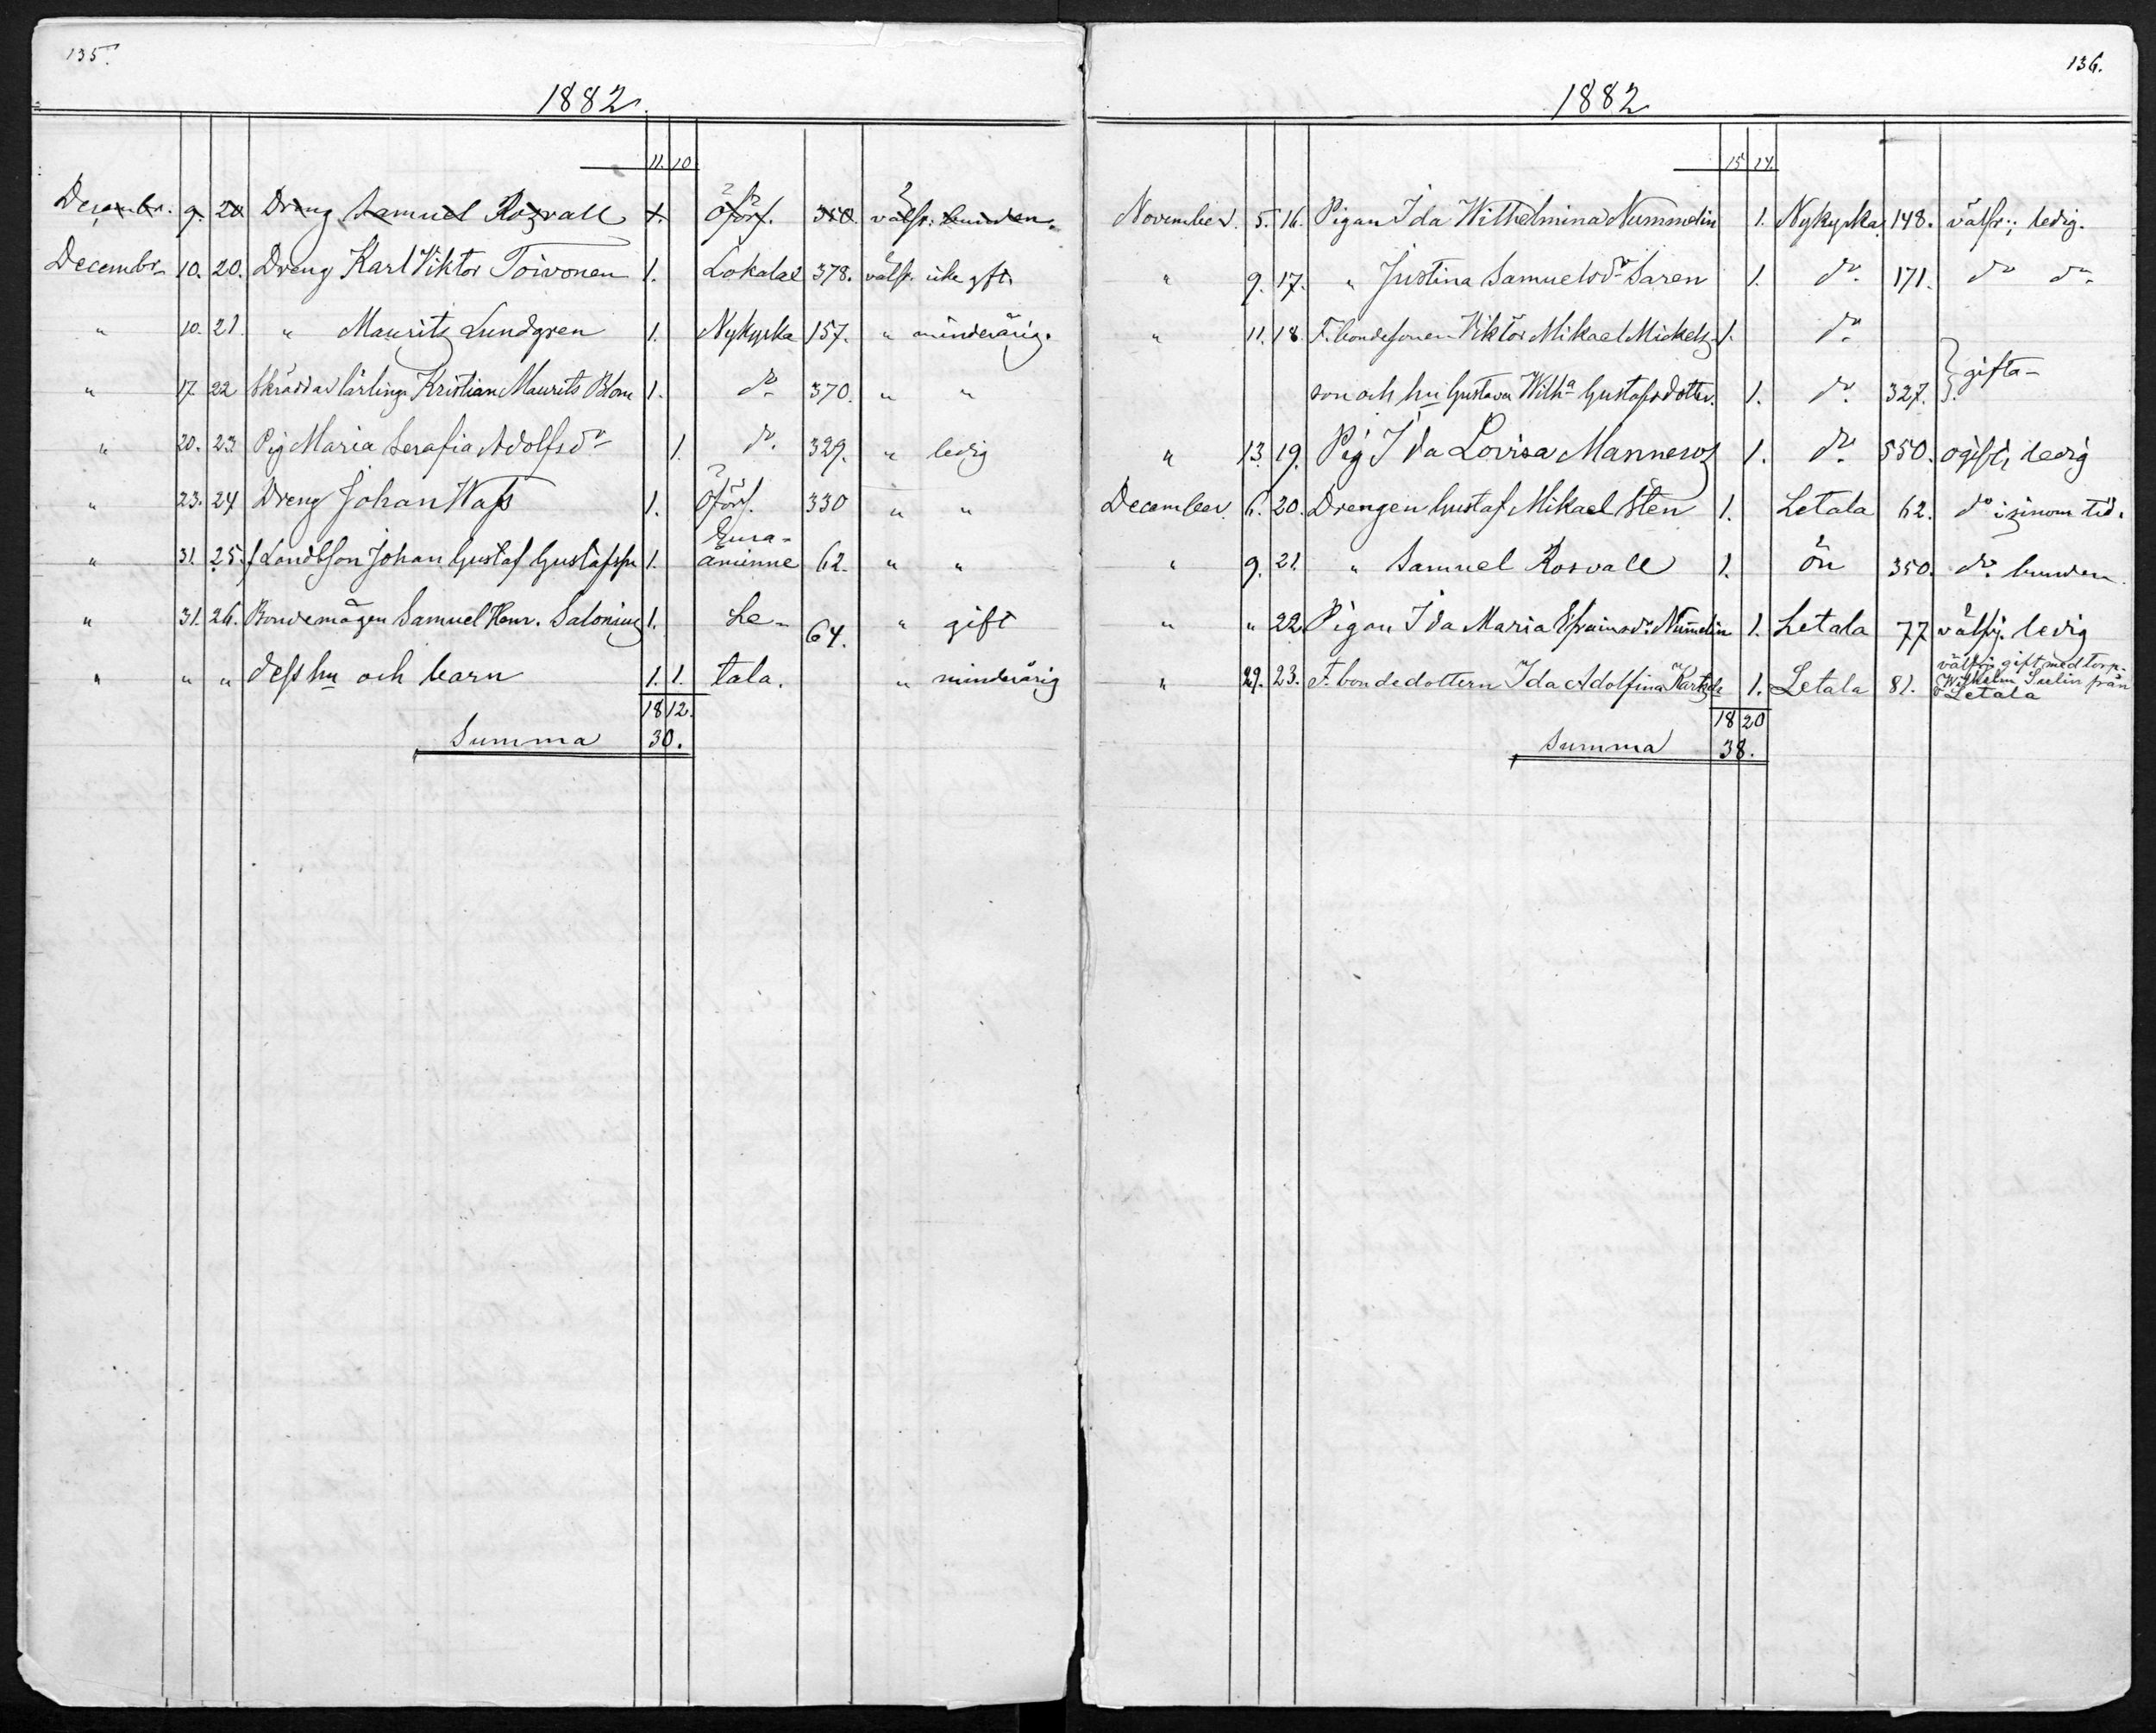 135.
1882
11. 10.
Decembr. 9. 20 Dräng Samuel Rosvall 1. Öförs. 350. välfr. bunden.
Decembr. 10. 20. Dreng Karl Viktor Toivonen 1. Lokalaks 378. välfr. icke gft.
" 10. 21. " Mauritz Lundgren 1. Nykyrka 157. " minderårig.
" 17. 22 Skräddarlärling Kristian Maurits Blom 1. do 370. " "
" 20. 23 Pig Maria Serafia Adolfsdr 1. do 329. " ledig
" 23. 24 Dreng Johan Wass 1. Öförs. 330 " "
" 31. 25. f Landbson Johan Gustaf Gustafsson 1. Eura-
åminne 62. " "
" 31. 26. Bondemågen Samuel Henr. Salonius 1. Le- 64. " gift
" " " dess hu och barn 1. 1. tala. " minderårig
18 12.
Summa 30.
136.
1882
15 14.
November. 5. 16. Pigan Ida Wilhelmina Nummelin 1. Nykyrka 148. välfr., ledig.
" 9. 17. " Justina Samuelsdr Saren 1. do. 171. do do
" 11. 18. F. bondesonen Viktor Mikael Mickels- 1. do
son och hu Gustava Wilha Gustafsdotter. 1. do. 327. } gifta
" 13. 19. Pig Ida Lovisa Manneros 1. do 550. ogift, ledig
December. 6. 20. Drengen Gustaf Mikael Sten 1. Letala 62. do i sinom tid.
" 9. 21. " Samuel Rosvall 1. ön 350. do. bunden.
" " 22. Pigan Ida Maria Efraimsdr Nummelin 1. Letala 77 välfrj. ledig
" 29. 23. F. bondedottern Ida Adolfina 1. Letala 81. välfrj. gift med torp.
Wilhelm från
Letala
18 20
Summa 38.